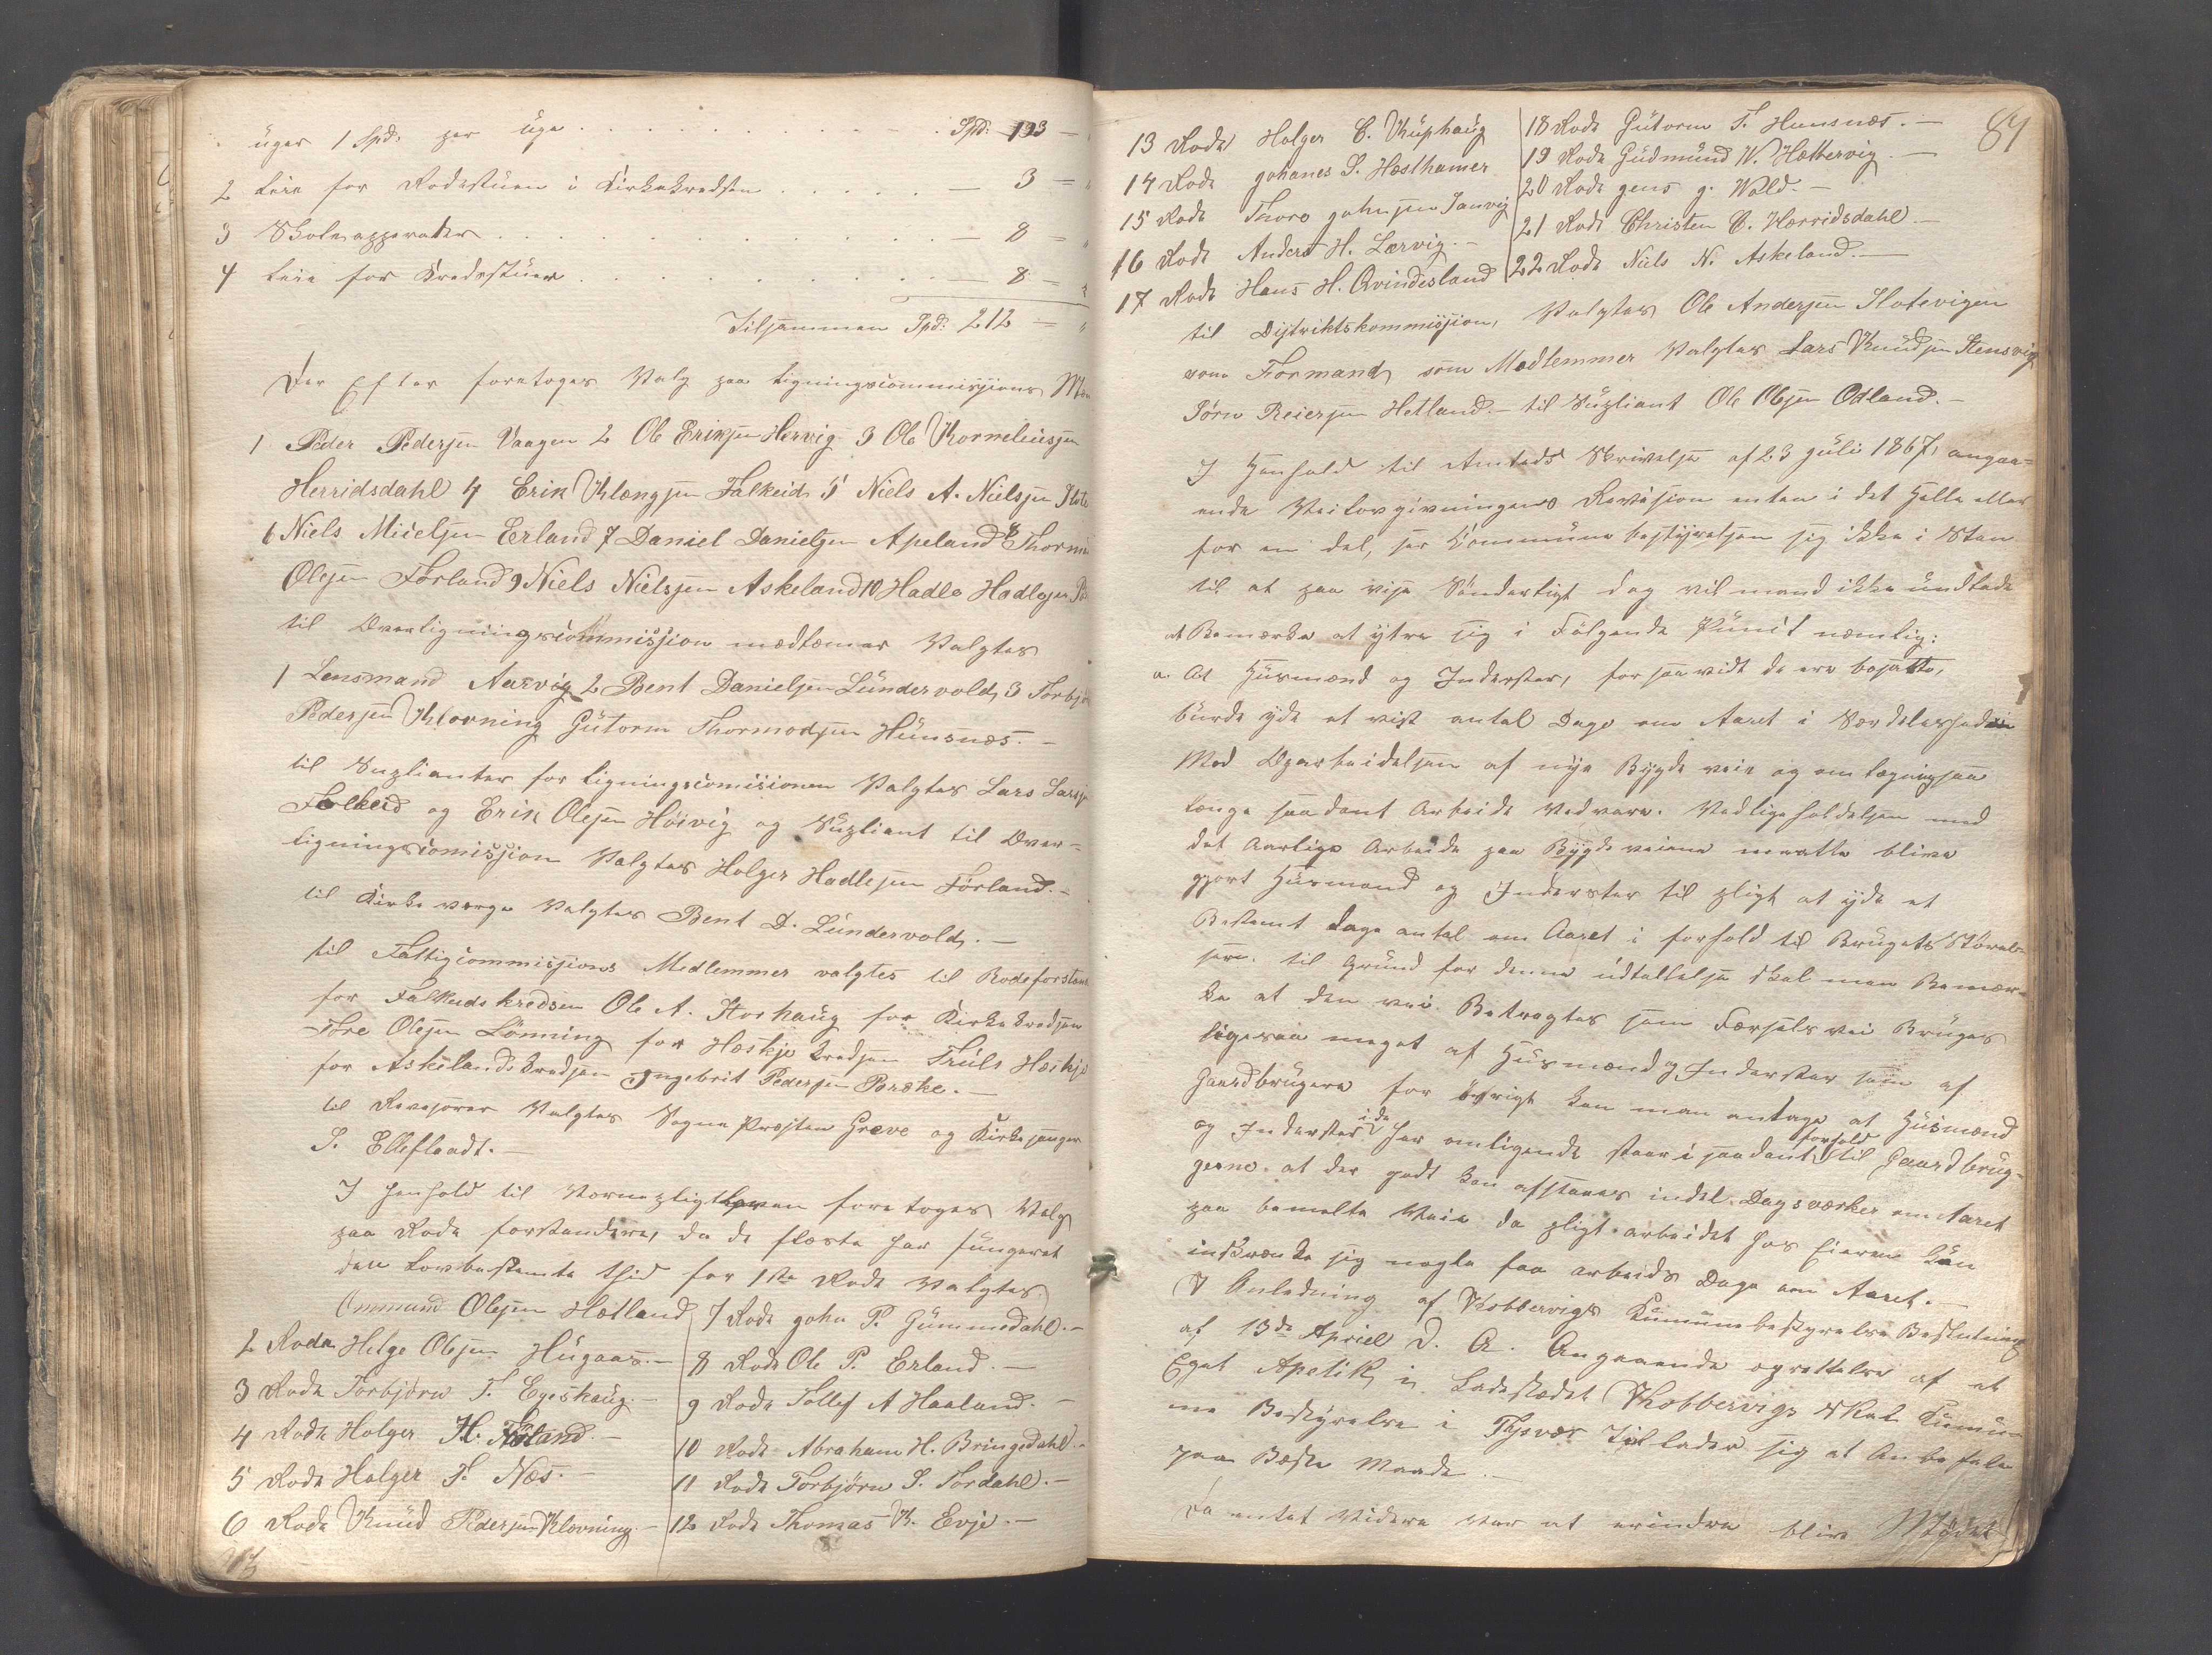 uger 1 Spd: per uge . . . . . . . . . . Spd: 193 —
2 Leie for Rodestuen i Kirkekredsen . . . . . — 3 — "
3 Skoleapperater . . . . . . . . . . . . — 8 — "
4 Leie for Kredsstuer . . . . . . . . . — 8 — "
Tilsammen Spd: 212 — "
Der Efter foretoges Valg paa Ligningscommissions
1 Peder Pedersen Vaagen 2 Ole Eriksen Hervig 3 Ole Korneliussen
Herridsdahl 4 Erik Klængsen Falkeid 5 Niels A. Nielsen
6 Niels Micelsen Erland 7 Daniel Danielsen Apeland 8
Olesen Førland 9 Niels Nielsen Askeland 10 Hadle Hadlesen
til Overligningscommission medlemer Valgtes
1 Lensmand Aarvig 2 Bent Danielsen Lündervold, 3
Pedersen Klovning Gütorm Thormodsen Hünsnæs. —
til Suplianter for Ligningscomisionen Valgtes Lars
Falkeid og Erik Olesen Høivig og Supliant til Over-
ligningscomission Valgtes Holger Hadlesen Førland. —
til Kirke verge Valgtes Bent D. Lündervold. —
til Fattigcommissions Medlemmer valgtes til Rodeforstan
for Falkeidskredsen Ole A. Storhaüg for Kirkekredsen
Tore Olesen Lönning for Hæskje kredsen Trüls Hæskje
for Askelands kredsen Ingebrit Pedersen Paraske. —
til Revisorer Valgtes Sogne Præsten Greve og Kirkesanger
S. Elleflaadt. —
I Henhold til Vernepligtloven foretoges Valg
paa Rode forstandere, da de fleste har füngeret
den Lovbestemte Tid for 1ste Rode Valgtes.
Ommund Olesen Hætland
2 Rode Helge Olesen Hügaas. —
3 Rode Torbjørn T. Eyeshaüg. —
4 Rode Holger H.
5 Rode Holger T. Næs. —
6 Rode Knüd Pedersen Klovning. —
7 Rode John P. Gümmedahl. —
8 Rode Ole P. Erland. —
9 Rode Tollef A Haaland. —
10 Rode Abraham H. Bringedahl. —
11 Rode Torbjörn S. Tordahl. —
12 Rode Thomas K. Evje. —
84
13 Rode Holger C. Küphaüg
14 Rode Johanes S. Hæsthamer
15 Rode Thore Johnsen
16 Rode Anders H. Lærvig. —
17 Rode Hans H. Qvindesland
18 Rode Gütorm T. Hunsnæs. —
19 Rode Güdmünd W. Hættervig. —
20 Rode Jens J. Wold. —
21 Rode Christen C. Hærridsdahl —
22 Rode Niels N. Askeland. —
til Distriktskommission, Valgtes Ole Andersen Slotevigen
som Formand, som Medlemmer Valgtes Lars Knüdsen Stensvig
Jörn Reiersen Hetland. — til Süpliant Ole Olsen Odland. —
I Henhold til Amtets Skrivelse af 23 Jüli 1867, angaa-
ende Veilovgivningens Revision enten i det Hele eller
for en del, ser Kommune bestyrelsen sig ikke i Stan
til at paa vise Sönderligt dog vil mand ikke ündlade
at Bemærke at ytre sig i Fölgende Pünct nemlig:
a. At Hüsmænd og Inderster, for saavidt de ere bosatte,
bürde yde et vist antal Dage om Aaret i Særdeleshed
Med Oparbeidelsen af nye Bygde veie og omlægning saa
længe saadant Arbeide Vedvare. Vedligeholdelsen med
det Aarlige Arbeide paa Bygdeveiene maatte blive
gjort Hüsmænd og Inderster til pligt at yde et
Bestemt Dage antal om Aaret i forhold til Brügets Störel-
sen. til Gründ for denne üdtallelse skal man Bemær-
ke at den vei Betragtes som Færselsvei Brüges
ligesaa meget af Hüsmænd og Inderster som af
Gaardbrügere for övrigt kan man antage at Hüsmænd
og Inderster i de her omligende staar i saadant forhold til Gaardbrüg-
gerne. at der godt kan afstaaes indel Dagsværker om Aaret
paa bemelte Veie da pligt-arbeidet hos Eieren kan
indskrænke sig nogle faa arbeids Dage om Aaret. —
I Anledning af Kobbervigs Kümünebestyrelse Beslutning
af 13de Apriel d. A. Angaaende oprettelse af et
Eget Apetik, i Ladestædet Kobbervigs Skal Kümü-
ne Bestyrelse i Tysvær Tillader sig at Anbefale
paa Beste Maade. —
Da entet Videre Var at erindre blive Mödet